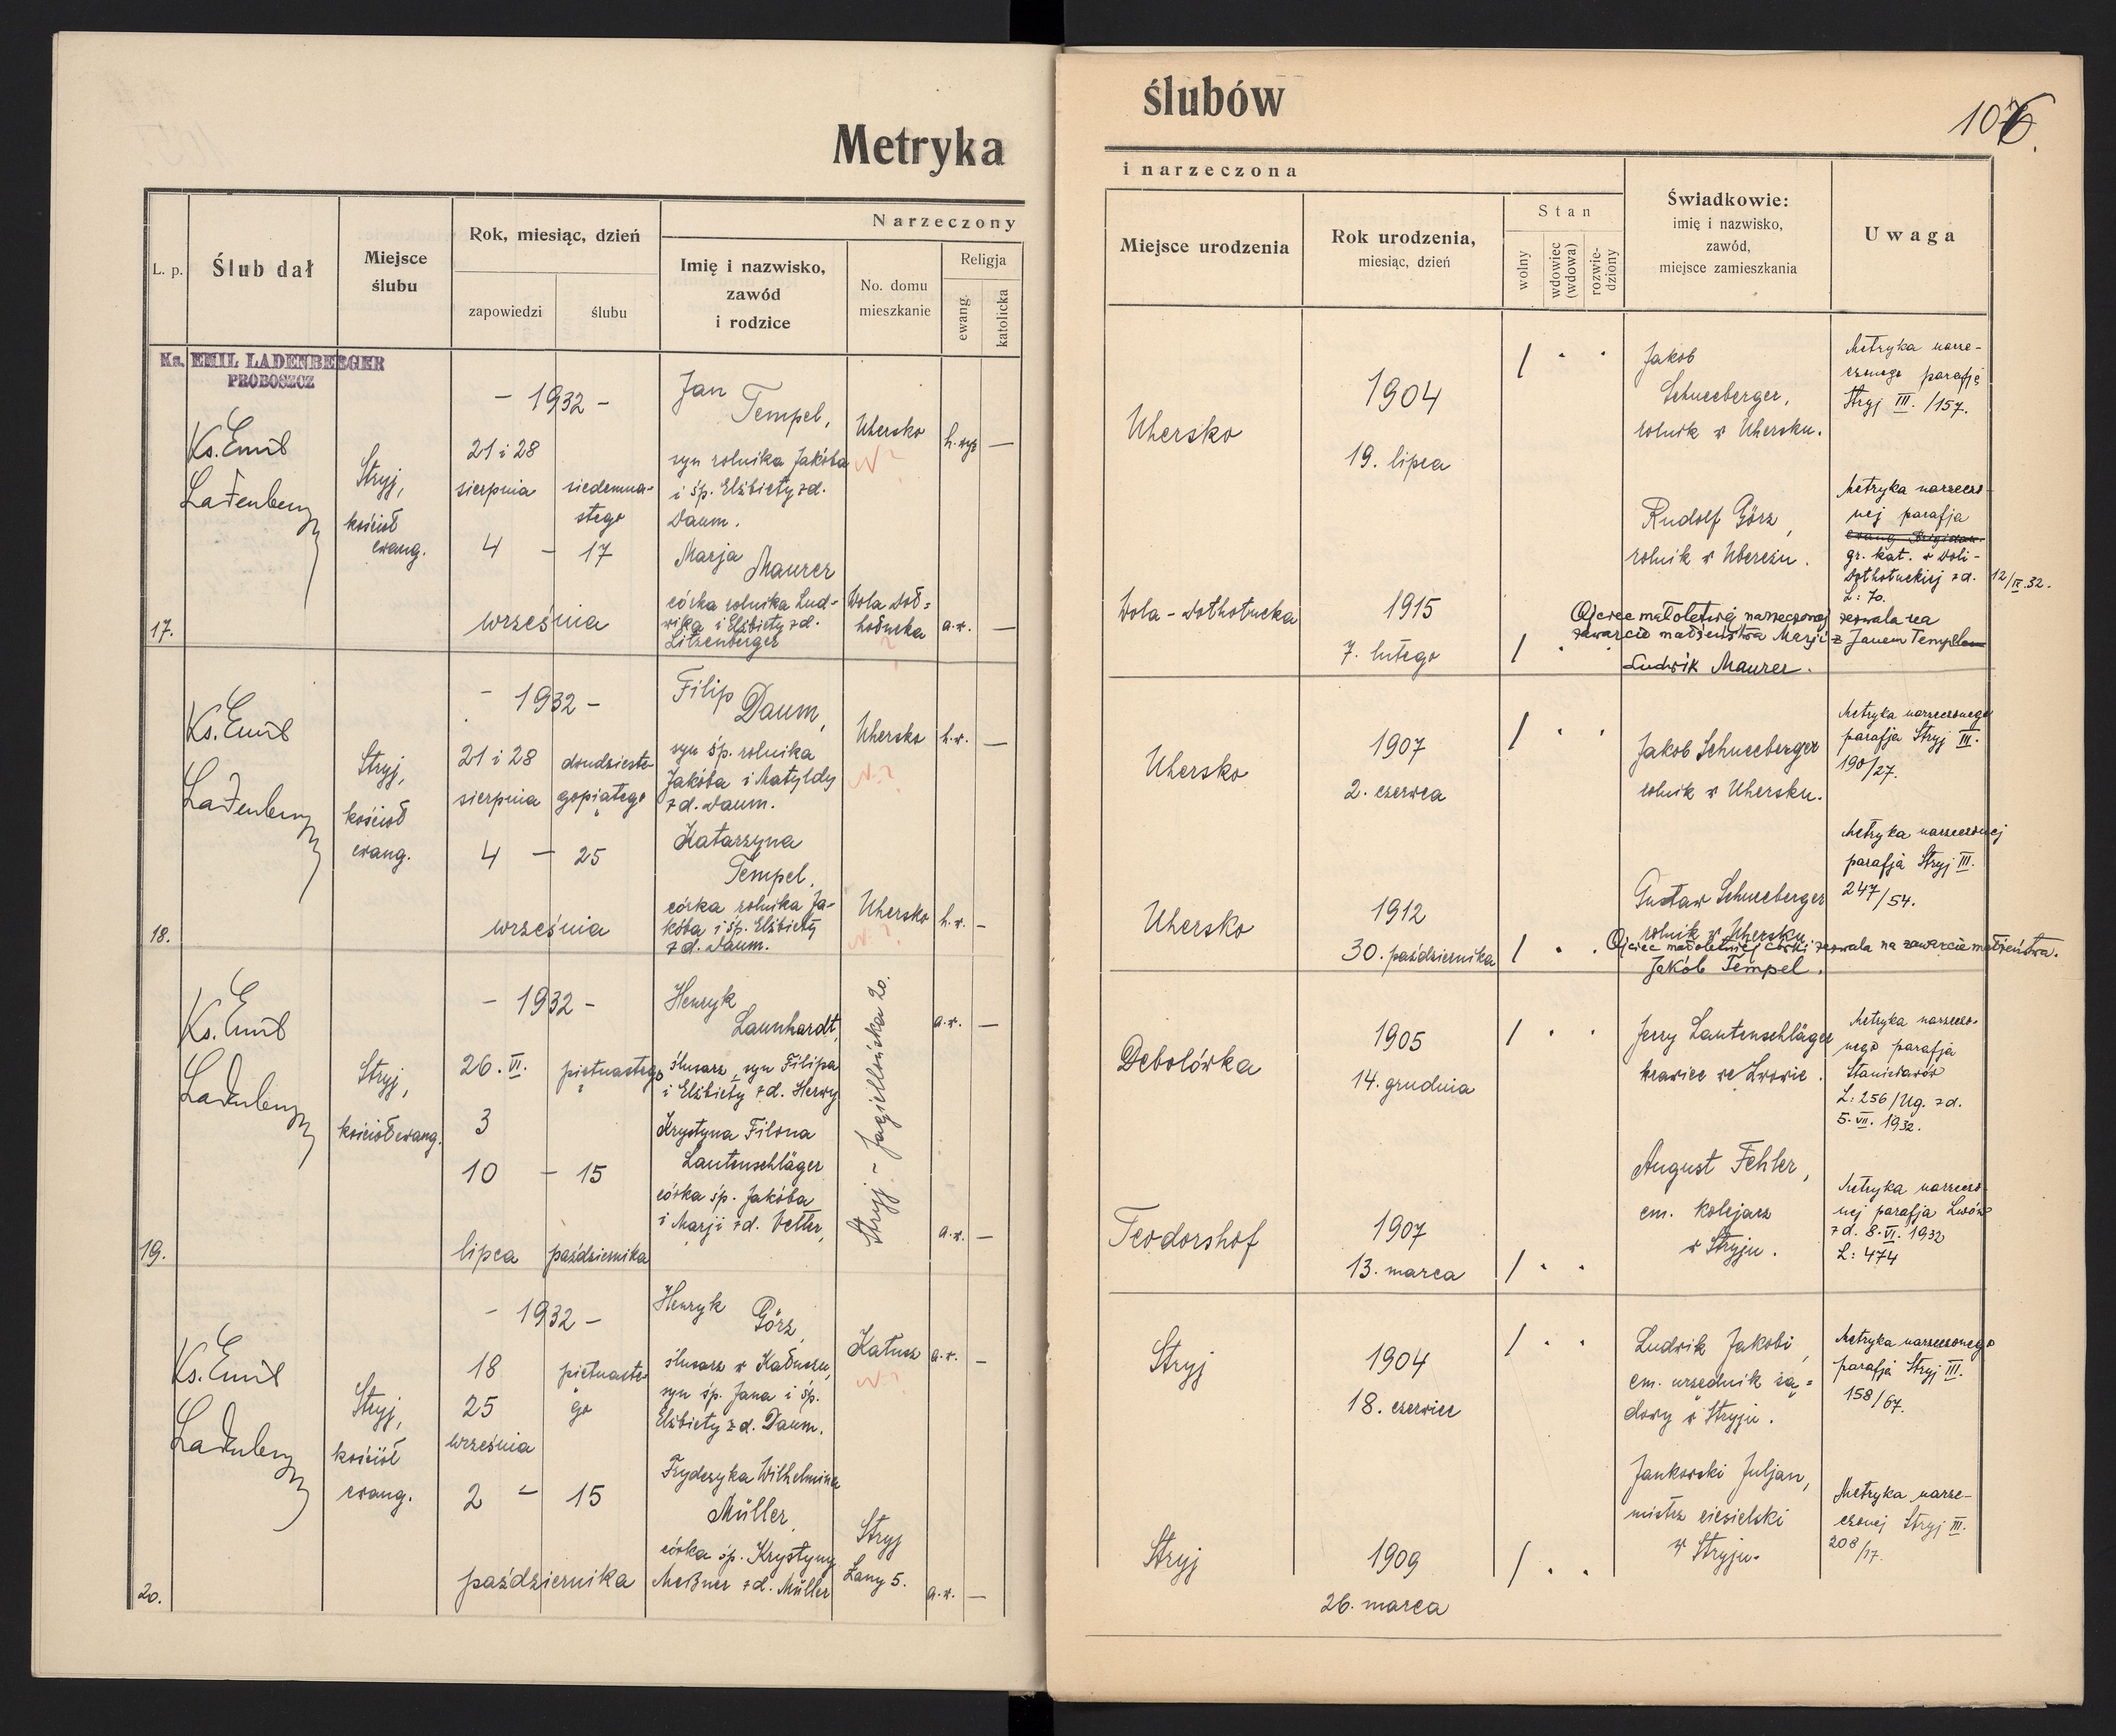 Metryka
ślubów
106.
Narzeczony
i narzeczona
L. p.
Ślub dał
Miejsce
ślubu
Rok, miesiąc, dzień
zapowiedzi
ślubu
Imię i nazwisko,
zawód
i rodzice
No. domu
mieszkanie
Religja
ewang.
katolicka
Miejsce urodzenia
Rok urodzenia,
miesiąc, dzień
Stan
wolny
wdowiec
(wdowa)
rozwie-
dziony
Świadkowie:
imię i nazwisko,
zawód,
miejsce zamieszkania
Uwaga
Ks. EMIL LADENBERGER
PROBOSZCZ
17.
Ks. Emil
Ladenberger
Stryj,
kościoł
ewang.
- 1932 -
21 i 28
sierpnia
siedemna-
stego
4 - 17
września
Jan
Tempel,
syn rolnika Jakóba
i śp. Elżbiety zd.
Daum.
Uhersko
N?
h. wyz —
Marja
Maurer
córka rolnika Lud-
wika i Elżbiety zd.
Litzenberger
Wola Doł-
hołucka
?
a.w. —
Uhersko
1904
19. lipca
/ · ·
Jakob
Schneeberger,
rolnik w Uhersku.
Metryka narze-
czonego parafja
Stryj III. /157.
Wola-Dołhołucka
1915
7. lutego
/ · ·
Rudolf Görz,
rolnik w Ubereżu.
Metryka narzeczo-
nej parafja
gr. kat. w Woli-
Dołhołuckiej zd. 12/IX.32.
L: 70.
Ojciec małoletniej narzeczonej zezwala na
zawarcie małżeństwa Marji z Janem Templem
Ludwik Maurer.
18.
Ks. Emil
Ladenberger
Stryj,
kościoł
ewang.
- 1932 -
21 i 28
sierpnia
dwudzieste-
gopiątego
4 - 25
września
Filip
Daum,
syn śp. rolnika
Jakóba i Matyldy
zd. Daum.
Uhersko
N.?
h.w. —
Katarzyna
Tempel,
córka rolnika Ja-
kóba i śp. Elżbiety
zd. Daum.
Uhersko
N.?
h.w. -
Uhersko
1907
2. czerwca
/ · ·
Jakob Schneeberger
rolnik w Uhersku.
Metryka narzeczonego
parafja Stryj III.
190/27.
Uhersko
1912
30. października
/ · ·
Gustaw Schneeberger
rolnik w Uhersku
Metryka narzeczonej
parafja Stryj III.
247/54.
Ojciec małoletniej córki zezwala na zawarcie małżeństwa.
Jakób Tempel.
19.
Ks. Emil
Ladenberger
Stryj,
kościoł ewang.
- 1932 -
26. VI.
piętnastego
3
10 - 15
lipca
października
Henryk
Launhardt,
ślusarz, syn Filipa
i Elżbiety zd. Herwy
a.w. —
Krystyna Filona
Lautenschläger
córka śp. Jakóba
i Marji zd. Vetter,
Stryj - Jagiellońska 20.
a.w. —
Debolówka
1905
14. grudnia
/ · ·
Jerzy Lautenschläger
krawiec we Lwowie.
Metryka narzeczo-
nego parafja
Stanisławów
L: 256/Ug. zd.
5. VII. 1932.
Teodorshof
1907
13. marca
/ · ·
August Fehler,
em. kolejarz
w Stryju.
Metryka narzeczo-
nej parafja Lwów
zd. 8. VI. 1932
L: 474
20.
Ks. Emil
Ladenberger
Stryj,
kościół
ewang.
- 1932 -
18
25
września
piętnaste-
go
2 - 15
października
Henryk
Görz,
ślusarz w Kałuszu,
syn śp. Jana i śp.
Elżbiety zd. Daum.
Kałusz
N.?
a.w. —
Fryderyka Wilhelmina
Müller,
córka śp. Krystyny
Meßner zd. Müller
Stryj
Lany 5.
a.w. —
Stryj
1904
18. czerwiec
/ · ·
Ludwik Jakobi,
em. urzędnik są-
dowy w Stryju.
Metryka narzeczonego
parafja Stryj III.
158/67.
Stryj
1909
26. marca
/ · ·
Jankowski Juljan,
mistrz ciesielski
w Stryju.
Metryka narze-
czonej Stryj III.
208/17.